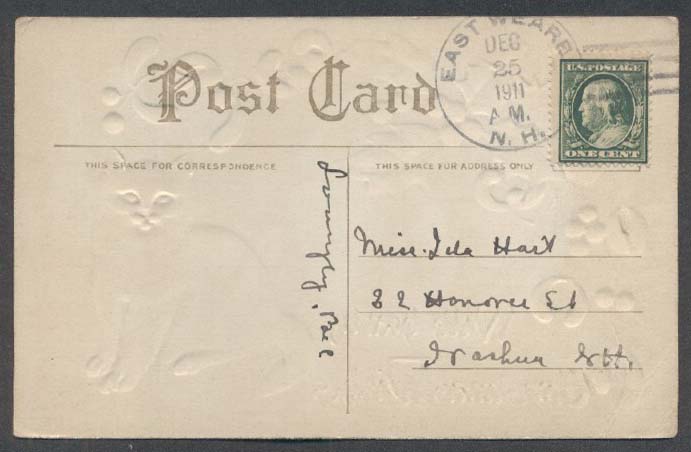 EAST WEARE
DEC
25
1911
A.M.
N. H.
U.S. POSTAGE
ONE CENT
Post Card
THIS SPACE FOR CORRESPONDENCE
THIS SPACE FOR ADDRESS ONLY
Miss. Ida Hart
22 Honover St
Nashua N.H.